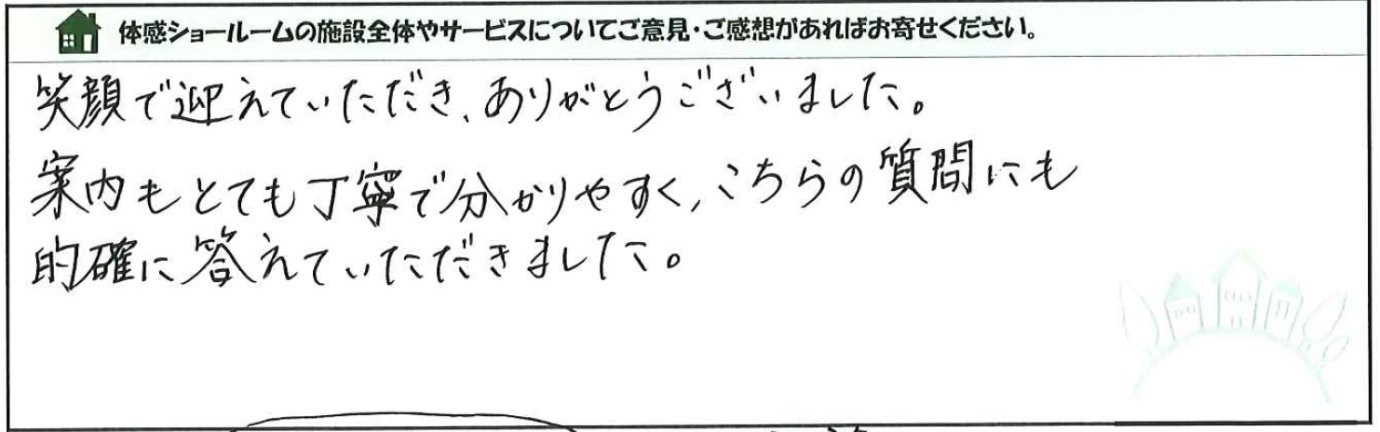 体感ショールームの施設全体やサービスについてご意見・ご感想があればお寄せください。
笑顔で迎えていただき、ありがとうございました。
案内もとても丁寧で分かりやすく、こちらの質問にも
的確に答えていただきました。